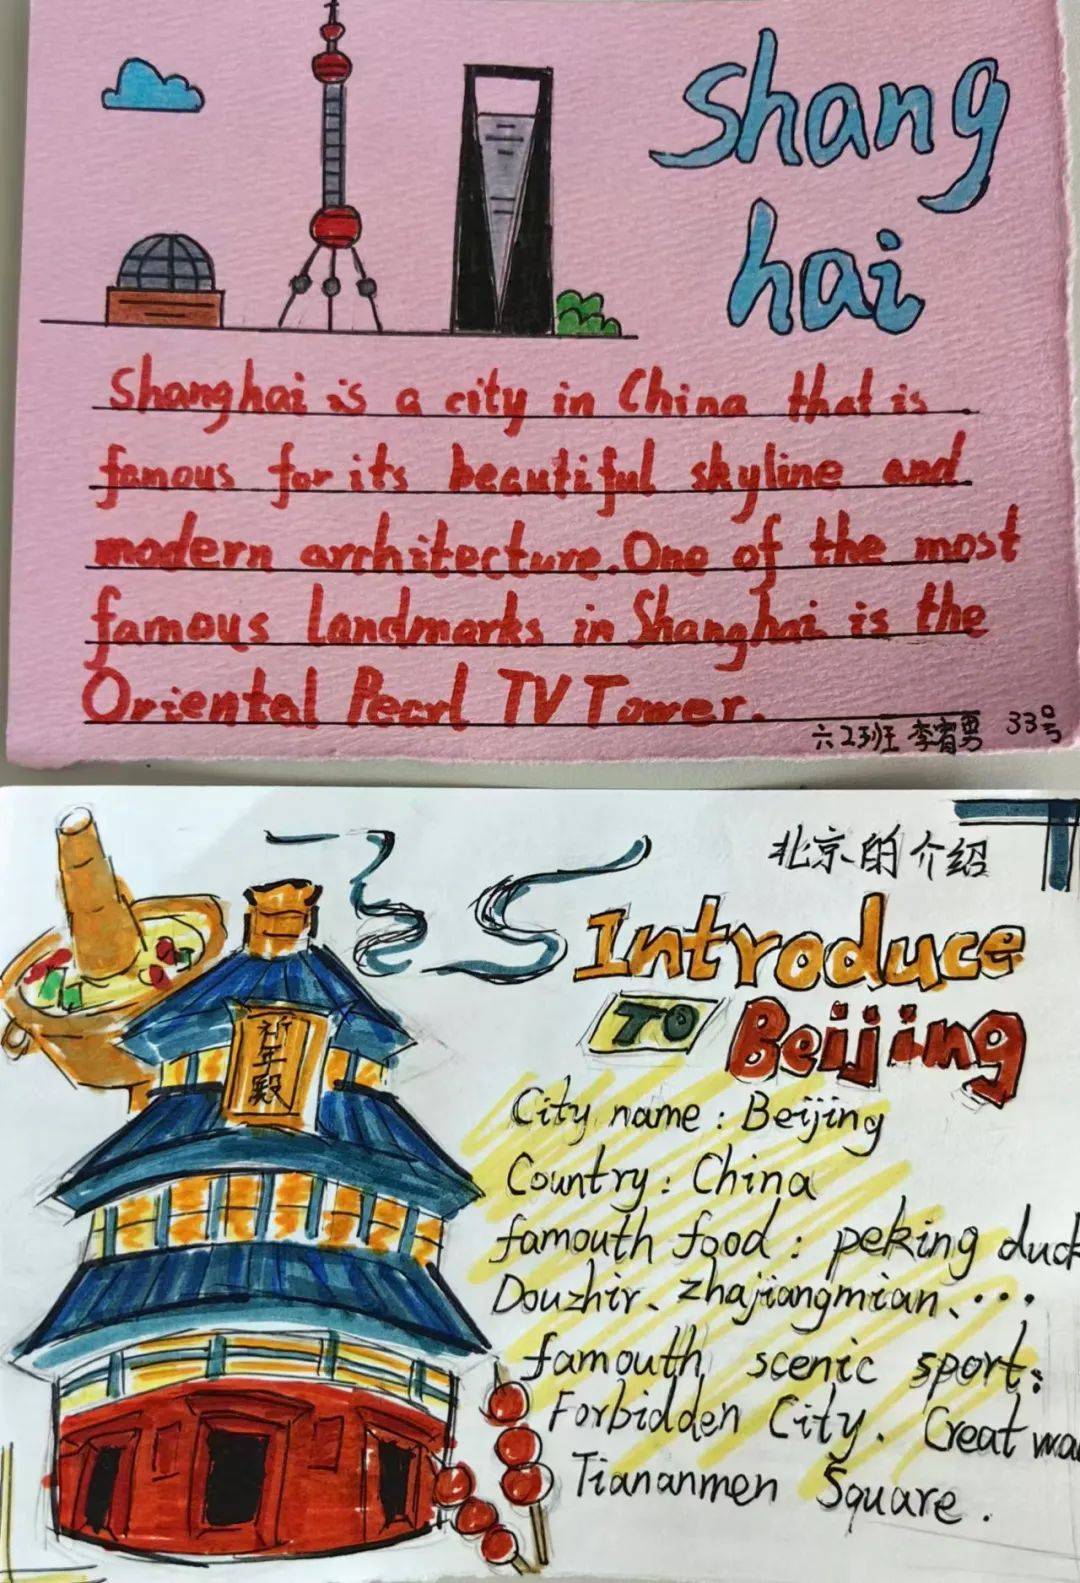 Shang
hai
Shanghai is a city in China that is
famous for its beautiful skyline and
modern architecture. One of the most
famous landmarks in Shanghai is the
Oriental Pearl TV Tower.
六23班 李宥勇 33号
北京的介绍
Introduce
TO
Beijing
祈年殿
City name: Beijing
Country: China
famouth food: peking duck
Douzhir、zhajiangmian、...
famouth scenic sport:
Forbidden City、Creat wa
Tiananmen Square.